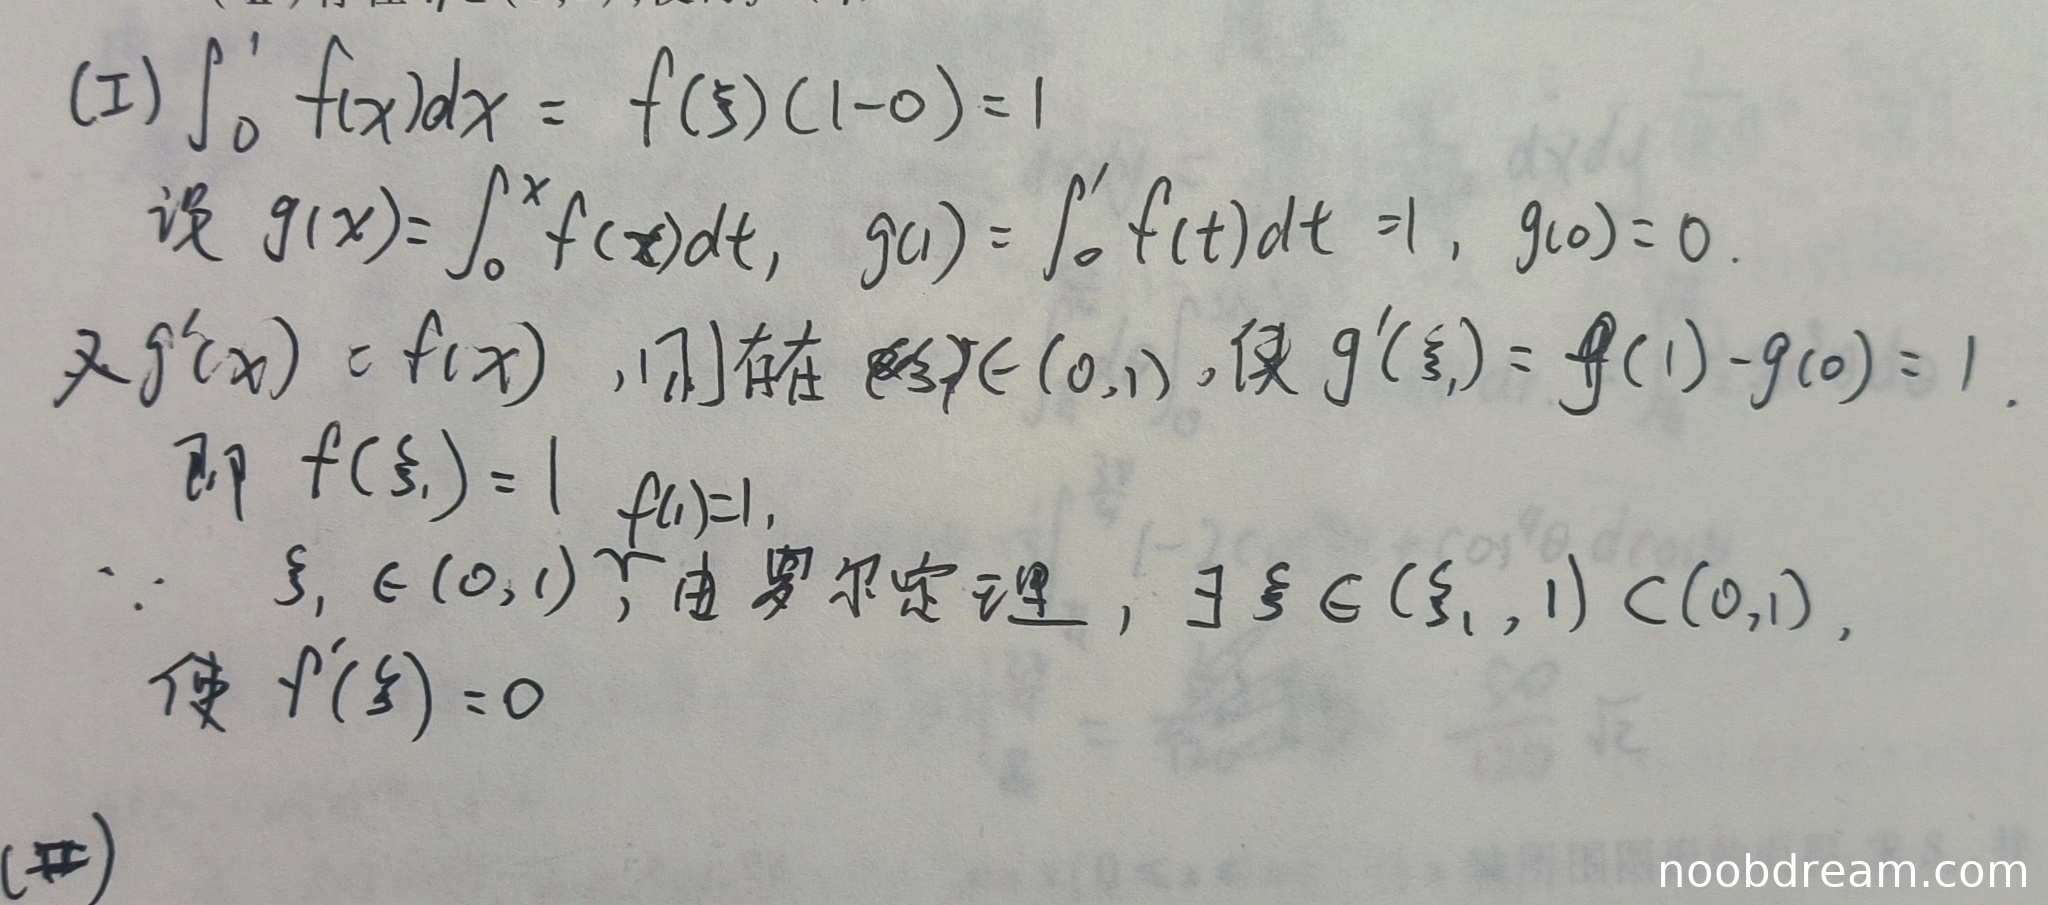 (I) ∫₀¹ f(x)dx = f(ξ)(1-0)=1
设 g(x)=∫₀ˣ f(x)dt, g(1)=∫₀¹ f(t)dt=1, g(0)=0.
又 g'(x)=f(x), 则存在 ξ₁∈(0,1), 使 g'(ξ₁)=g(1)-g(0)=1.
即 f(ξ₁)=1 f(1)=1,
∵ ξ₁∈(0,1), 由罗尔定理, ∃ξ∈(ξ₁,1)⊂(0,1),
使 f'(ξ)=0
(II)
noobdream.com